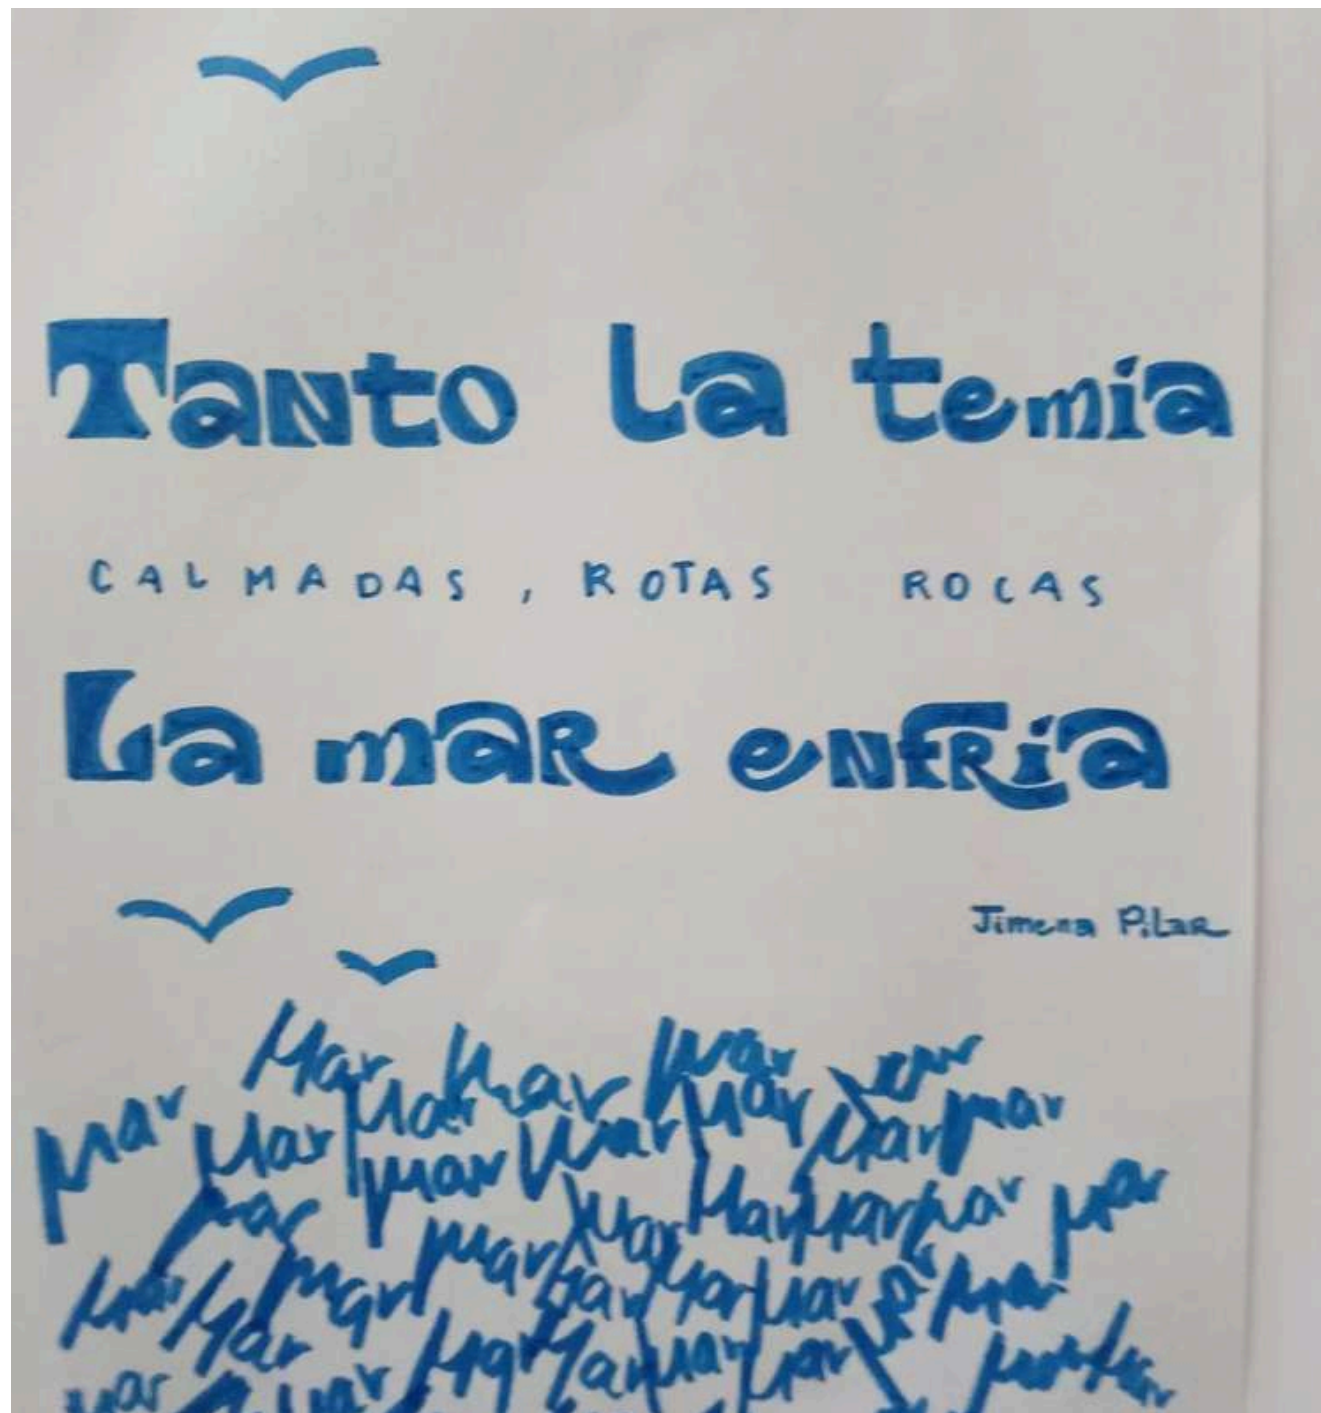 Tanto la temía
CALMADAS, ROTAS ROCAS
La mar enfría
Jimena Pilar
Mar mar mar mar
mar mar mar mar mar mar
mar mar mar mar
mar mar mar mar mar mar
mar mar mar mar mar mar
mar mar mar mar mar
mar mar